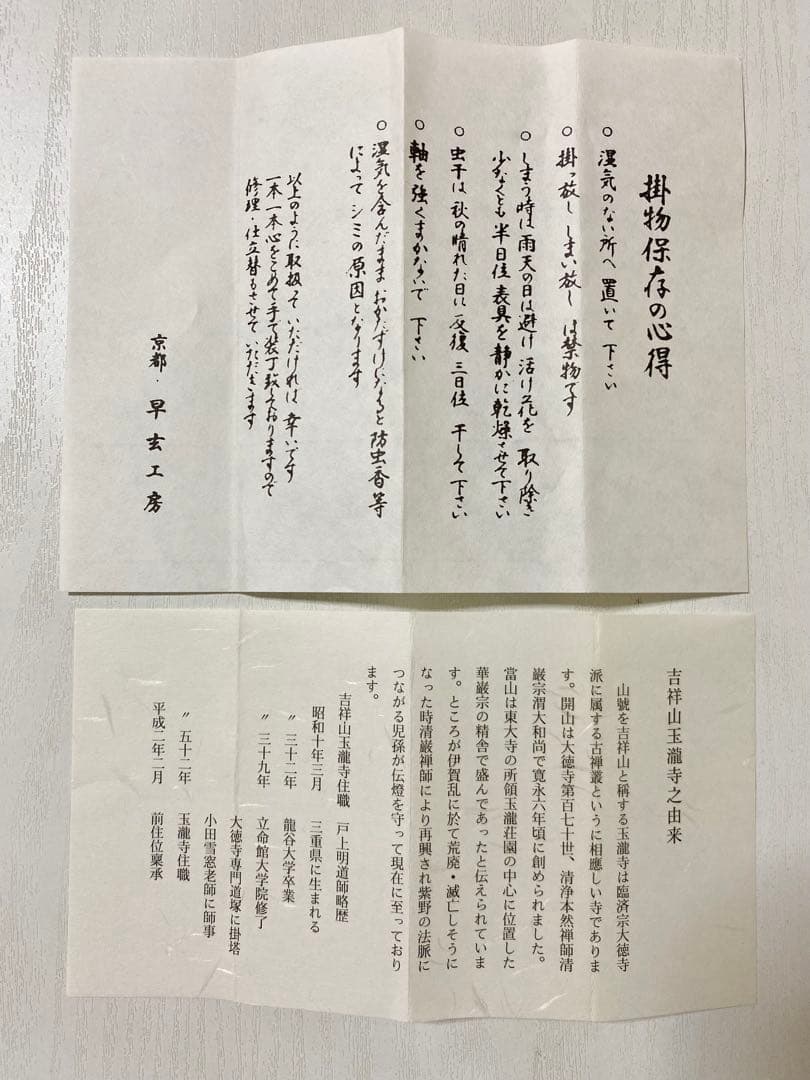 掛物保存の心得
○ 湿気のない所へ 置いて 下さい
○ 掛っ放し しまい放し は禁物です
○ しまう時は 雨天の日は避け 活け花を 取り除き
少なくとも 半日位 表具を 静かに 乾燥させて下さい
○ 虫干は 秋の晴れた日に 反復 三日位 干して 下さい
○ 軸を 強くまかないで 下さい
○ 湿気を含んだまま おかたずけになると 防虫香等
によって シミの原因となります
以上のように 取扱って いただければ 幸いです
一本一本心をこめて手で装丁致しておりますので
修理・仕立替もさせて いただきます
京都・早玄工房
吉祥山玉瀧寺之由来
山號を吉祥山と稱する玉瀧寺は臨済宗大徳寺
派に属する古禅叢というに相應しい寺でありま
す。開山は大徳寺第百七十世、清浄本然禅師清
巌宗渭大和尚で寛永六年頃に創められました。
當山は東大寺の所領玉瀧荘園の中心に位置した
華巌宗の精舎で盛んであったと伝えられていま
す。ところが伊賀乱に於て荒廃・滅亡しそうに
なった時清巌禅師により再興され紫野の法脈に
つながる児孫が伝燈を守って現在に至っており
ます。
吉祥山玉瀧寺住職 戸上明道師略歴
昭和十年三月 三重県に生まれる
〃 三十二年 龍谷大学卒業
〃 三十九年 立命館大学院修了
大徳寺専門道塚に掛塔
小田雪窓老師に師事
〃 五十二年 玉瀧寺住職
平成二年二月 前住位稟承